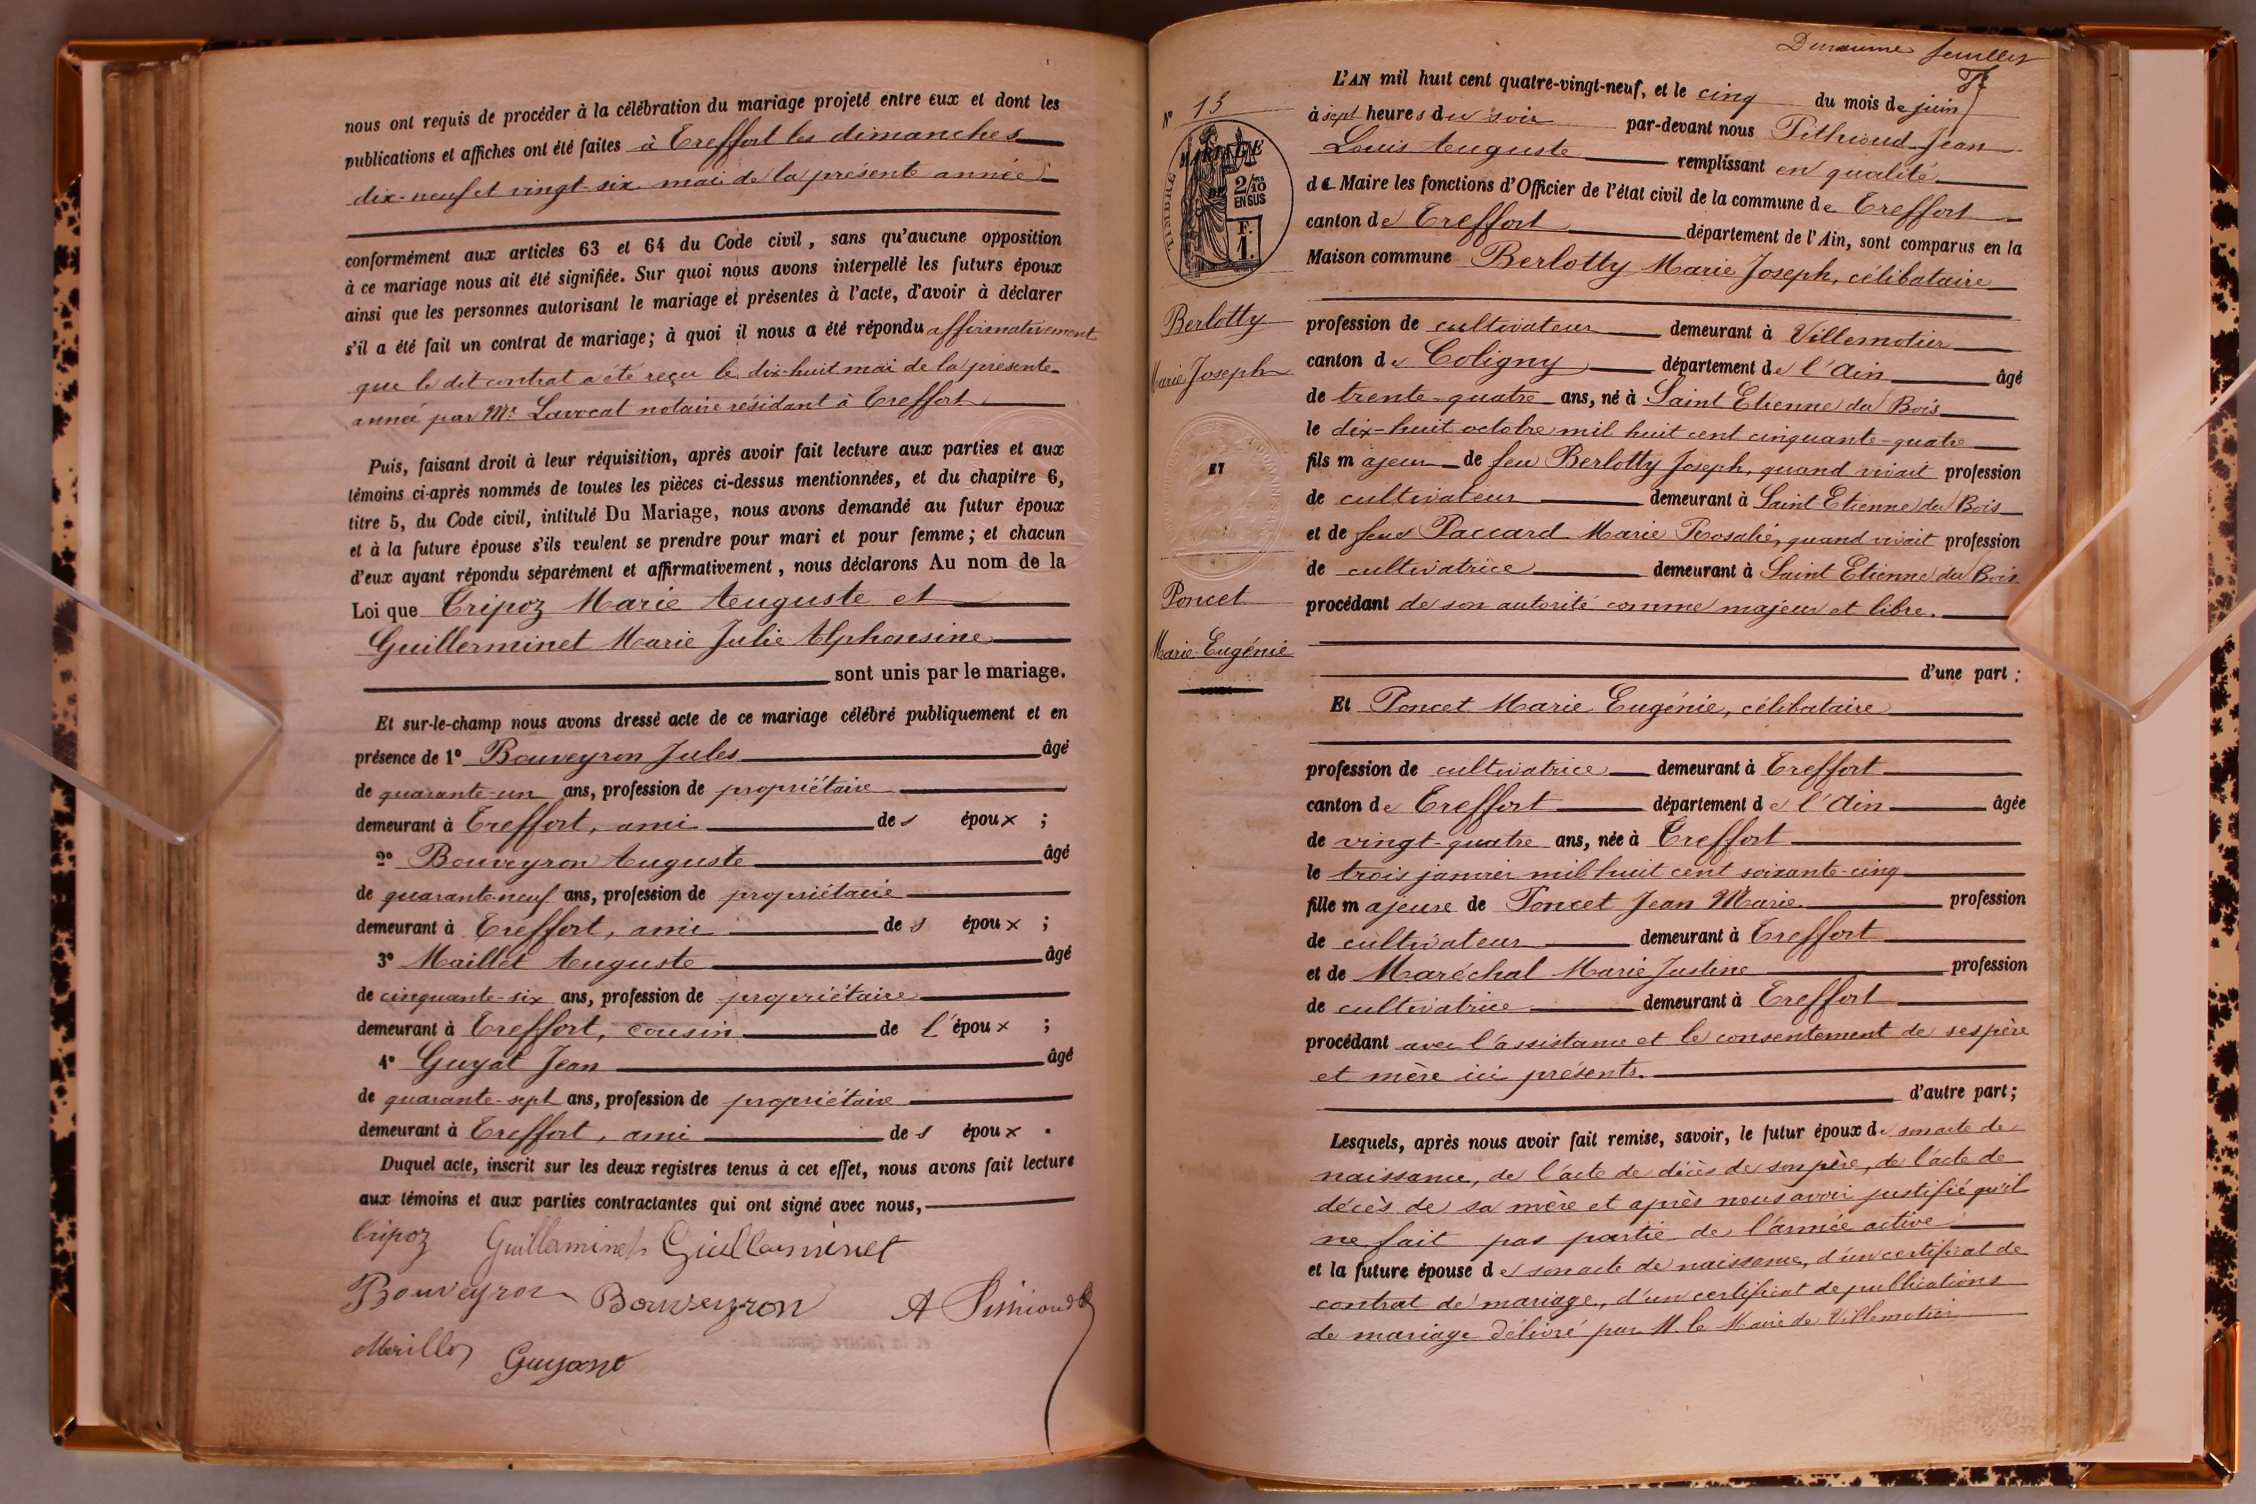 nous ont requis de procéder à la célébration du mariage projeté entre eux et dont les
publications et affiches ont été faites à Treffort les dimanches
dix-neuf et vingt-six mai de la présente année
conformément aux articles 63 et 64 du Code civil, sans qu'aucune opposition
à ce mariage nous ait été signifiée. Sur quoi nous avons interpellé les futurs époux
ainsi que les personnes autorisant le mariage et présentes à l'acte, d'avoir à déclarer
s'il a été fait un contrat de mariage; à quoi il nous a été répondu affirmativement
que le dit contrat a été reçu le dix-huit mai de la présente
année par Mr Lavocat notaire résidant à Treffort
Puis, faisant droit à leur réquisition, après avoir fait lecture aux parties et aux
témoins ci-après nommés de toutes les pièces ci-dessus mentionnées, et du chapitre 6,
titre 5, du Code civil, intitulé Du Mariage, nous avons demandé au futur époux
et à la future épouse s'ils veulent se prendre pour mari et pour femme; et chacun
d'eux ayant répondu séparément et affirmativement, nous déclarons Au nom de la
Loi que Tripoz Marie Auguste et
Guillerminet Marie Julie Alphonsine
sont unis par le mariage.
Et sur-le-champ nous avons dressé acte de ce mariage célébré publiquement et en
présence de 1° Bouveyron Jules âgé
de quarante-un ans, profession de propriétaire
demeurant à Treffort, ami des époux ;
2° Bouveyron Auguste âgé
de quarante-neuf ans, profession de propriétaire
demeurant à Treffort, ami des époux ;
3° Maillet Auguste âgé
de cinquante-six ans, profession de propriétaire
demeurant à Treffort, cousin de l'époux ;
4° Guyat Jean âgé
de quarante-sept ans, profession de propriétaire
demeurant à Treffort, ami des époux .
Duquel acte, inscrit sur les deux registres tenus à cet effet, nous avons fait lecture
aux témoins et aux parties contractantes qui ont signé avec nous,
Tripoz Guillerminet Guillerminet
Bouveyron Bouveyron A
feuillet
N° 13
TIMBRE
2/10
EN SUS
F.
1.
Berlotty
Marie Joseph
ET
Poncet
Marie-Eugénie
L'AN mil huit cent quatre-vingt-neuf, et le cinq du mois de juin
à sept heures du soir par-devant nous Pithioud Jean
Louis Auguste remplissant en qualité
de Maire les fonctions d'Officier de l'état civil de la commune de Treffort
canton de Treffort département de l'Ain, sont comparus en la
Maison commune Berlotty Marie Joseph, célibataire
profession de cultivateur demeurant à Villemotier
canton de Coligny département de l'Ain âgé
de trente-quatre ans, né à Saint Etienne du Bois
le dix-huit octobre mil huit cent cinquante-quatre
fils majeur de feu Berlotty Joseph, quand vivait profession
de cultivateur demeurant à Saint Etienne du Bois
et de feue Paccard Marie Rosalie, quand vivait profession
de cultivatrice demeurant à Saint Etienne du Bois
procédant de son autorité comme majeur et libre.
d'une part ;
Et Poncet Marie Eugénie, célibataire
profession de cultivatrice demeurant à Treffort
canton de Treffort département de l'Ain âgée
de vingt-quatre ans, née à Treffort
le trois janvier mil huit cent soixante-cinq
fille majeure de Poncet Jean Marie profession
de cultivateur demeurant à Treffort
et de Maréchal Marie Justine profession
de cultivatrice demeurant à Treffort
procédant avec l'assistance et le consentement de ses père
et mère ici présents.
d'autre part ;
Lesquels, après nous avoir fait remise, savoir, le futur époux de son acte de
naissance, de l'acte de décès de son père, de l'acte de
décès de sa mère et après nous avoir justifié qu'il
ne fait pas partie de l'armée active
et la future épouse de son acte de naissance, d'un certificat de
contrat de mariage, d'un certificat de publications
de mariage délivré par M. le Maire de Villemotier